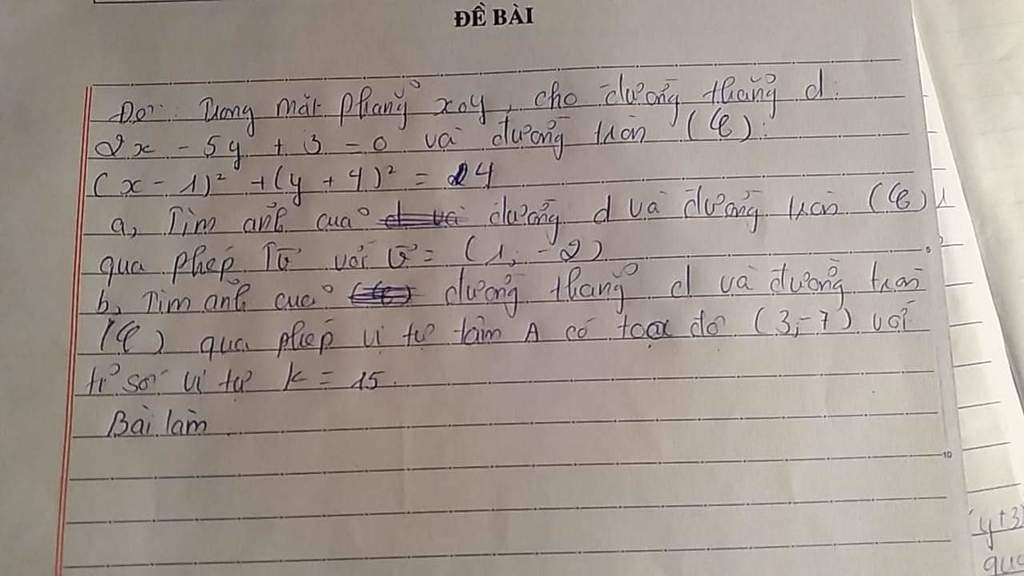 ĐỀ BÀI
Đề: Trong mặt phẳng xoy, cho đường thẳng d:
2x - 5y + 3 = 0 và đường tròn (C):
(x - 1)² + (y + 4)² = 24
a, Tìm ảnh của đường d và đường tròn (C)
qua phép Tv với v = (1, -2)
b, Tìm ảnh của đường thẳng d và đường tròn
(C) qua phép vị tự tâm A có toạ độ (3,-7) với
tỉ số vị tự k = 15.
Bài làm
5
10
(y+3)
qua